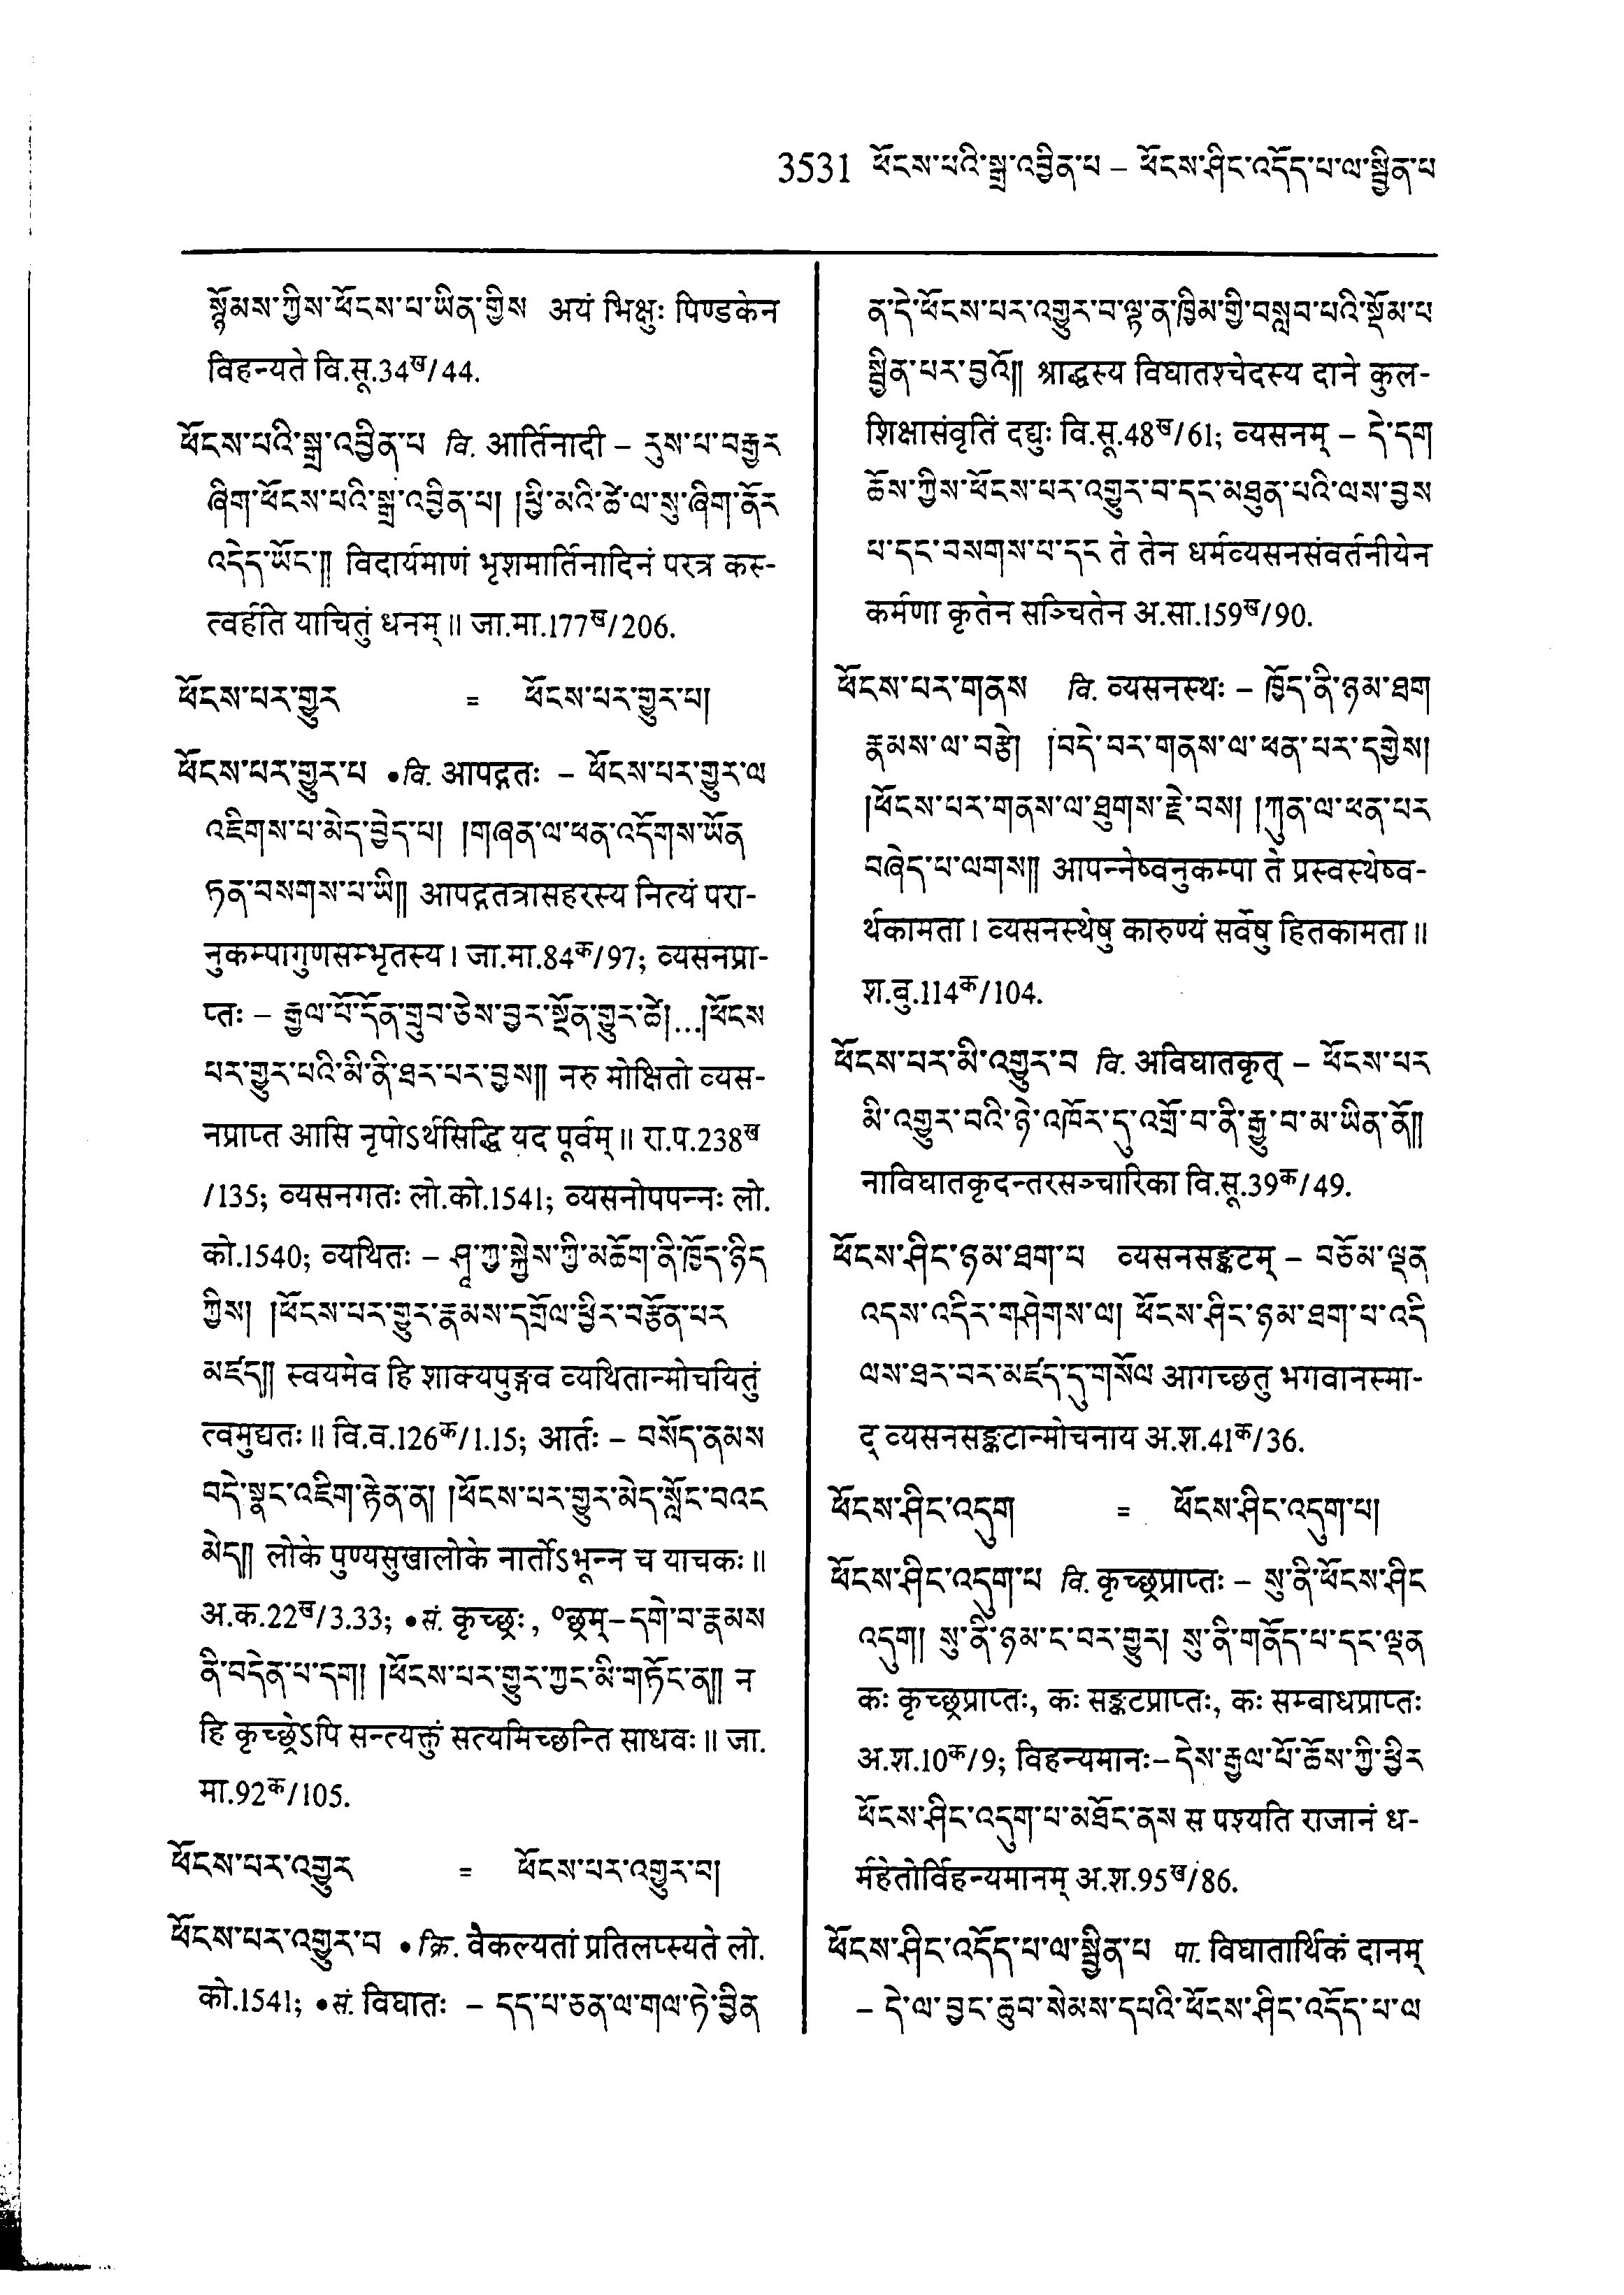 3531 ཕོངས་པའི་སྒྲ་འབྱིན་པ – ཕོངས་ཤིང་འདོད་པ་ལ་སྦྱིན་པ
སྙོམས་ཀྱིས་ཕོངས་པ་ཡིན་གྱིས अयं भिक्षुः पिण्डकेन
विहन्यते वि.सू.34ख/44.
ཕོངས་པའི་སྒྲ་འབྱིན་པ वि. आर्तिनादी – རུས་པ་བརྒྱར
ཞིག་ཕོངས་པའི་སྒྲ་འབྱིན་པ། །ཕྱི་མའི་ཚེ་ལ་སུ་ཞིག་ནོར
འདེད་ཡོང་༎ विदार्यमाणं भृशमार्तिनादिनं परत्र कस्-
त्वर्हति याचितुं धनम्॥ जा.मा.177ख/206.
ཕོངས་པར་གྱུར = ཕོངས་པར་གྱུར་པ།
ཕོངས་པར་གྱུར་པ •वि. आपद्गतः – ཕོངས་པར་གྱུར་ལ
འཇིགས་པ་མེད་བྱེད་པ། །གཞན་ལ་ཕན་འདོགས་ཡོན
ཏན་བསགས་པ་ཡི༎ आपद्गतत्रासहरस्य नित्यं परा-
नुकम्पागुणसम्भृतस्य। जा.मा.84क/97; व्यसनप्रा-
प्तः – རྒྱལ་པོ་དོན་གྲུབ་ཅེས་བྱར་སྔོན་གྱུར་ཚེ།...།ཕོངས
པར་གྱུར་པའི་མི་ནི་ཐར་པར་བྱས༎ नरु मोक्षितो व्यस-
नप्राप्त आसि नृपोऽर्थसिद्धि यद पूर्वम्॥ रा.प.238ख
/135; व्यसनगतः लो.को.1541; व्यसनोपपन्नः लो.
को.1540; व्यथितः – ཤཱཀྱ་སྐྱེས་ཀྱི་མཆོག་ནི་ཁྱོད་ཉིད
ཀྱིས། །ཕོངས་པར་གྱུར་རྣམས་དགྲོལ་ཕྱིར་བརྩོན་པར
མཛད༎ स्वयमेव हि शाक्यपुङ्गव व्यथितान्मोचयितुं
त्वमुद्यतः॥ वि.व.126क/1.15; आर्तः – བསོད་ནམས
བདེ་སྣང་འཇིག་རྟེན་ན། །ཕོངས་པར་གྱུར་མེད་སློང་བའང
མེད༎ लोके पुण्यसुखालोके नार्तोऽभून्न च याचकः॥
अ.क.22ख/3.33; •सं. कृच्छ्रः, ०च्छ्रम्–དགེ་བ་རྣམས
ནི་བདེན་པ་དག། །ཕོངས་པར་གྱུར་ཀྱང་མི་གཏོང་ན༎ न
हि कृच्छ्रेऽपि सन्त्यक्तुं सत्यमिच्छन्ति साधवः॥ जा.
मा.92क/105.
ཕོངས་པར་འགྱུར = ཕོངས་པར་འགྱུར་བ།
ཕོངས་པར་འགྱུར་བ •क्रि. वैकल्यतां प्रतिलप्स्यते लो.
को.1541; •सं. विघातः – དད་པ་ཅན་ལ་གལ་ཏེ་བྱིན
ན་དེ་ཕོངས་པར་འགྱུར་བ་ལྟ་ན་ཁྱིམ་གྱི་བསླབ་པའི་སྡོམ་པ
སྦྱིན་པར་བྱའོ༎ श्राद्धस्य विघातश्चेदस्य दाने कुल-
शिक्षासंवृतिं दद्युः वि.सू.48ख/61; व्यसनम् – དེ་དག
ཆོས་ཀྱིས་ཕོངས་པར་འགྱུར་བ་དང་མཐུན་པའི་ལས་བྱས
པ་དང་བསགས་པ་དང ते तेन धर्मव्यसनसंवर्तनीयेन
कर्मणा कृतेन सञ्चितेन अ.सा.159ख/90.
ཕོངས་པར་གནས वि. व्यसनस्थः – ཁྱོད་ནི་ཉམ་ཐག
རྣམས་ལ་བརྩེ། །བདེ་བར་གནས་ལ་ཕན་པར་དགྱེས།
།ཕོངས་པར་གནས་ལ་ཐུགས་རྗེ་བས། །ཀུན་ལ་ཕན་པར
བཞེད་པ་ལགས༎ आपन्नेष्वनुकम्पा ते प्रस्वस्थेष्व-
र्थकामता। व्यसनस्थेषु कारुण्यं सर्वेषु हितकामता॥
श.बु.114क/104.
ཕོངས་པར་མི་འགྱུར་བ वि. अविघातकृत् – ཕོངས་པར
མི་འགྱུར་བའི་ཉེ་འཁོར་དུ་འགྲོ་བ་ནི་རྒྱུ་བ་མ་ཡིན་ནོ༎
नाविघातकृदन्तरसञ्चारिका वि.सू.39क/49.
ཕོངས་ཤིང་ཉམ་ཐག་པ व्यसनसङ्कटम् – བཅོམ་ལྡན
འདས་འདིར་གཤེགས་ལ། ཕོངས་ཤིང་ཉམ་ཐག་པ་འདི
ལས་ཐར་བར་མཛད་དུ་གསོལ आगच्छतु भगवानस्मा-
द् व्यसनसङ्कटान्मोचनाय अ.श.41क/36.
ཕོངས་ཤིང་འདུག = ཕོངས་ཤིང་འདུག་པ།
ཕོངས་ཤིང་འདུག་པ वि. कृच्छ्रप्राप्तः – སུ་ནི་ཕོངས་ཤིང
འདུག། སུ་ནི་ཉམ་ང་བར་གྱུར། སུ་ནི་གནོད་པ་དང་ལྡན
कः कृच्छ्रप्राप्तः, कः सङ्कटप्राप्तः, कः सम्बाधप्राप्तः
अ.श.10क/9; विहन्यमानः–དེས་རྒྱལ་པོ་ཆོས་ཀྱི་ཕྱིར
ཕོངས་ཤིང་འདུག་པ་མཐོང་ནས स पश्यति राजानं ध-
र्महेतोर्विहन्यमानम् अ.श.95ख/86.
ཕོངས་ཤིང་འདོད་པ་ལ་སྦྱིན་པ पा. विघातार्थिकं दानम्
– དེ་ལ་བྱང་ཆུབ་སེམས་དཔའི་ཕོངས་ཤིང་འདོད་པ་ལ